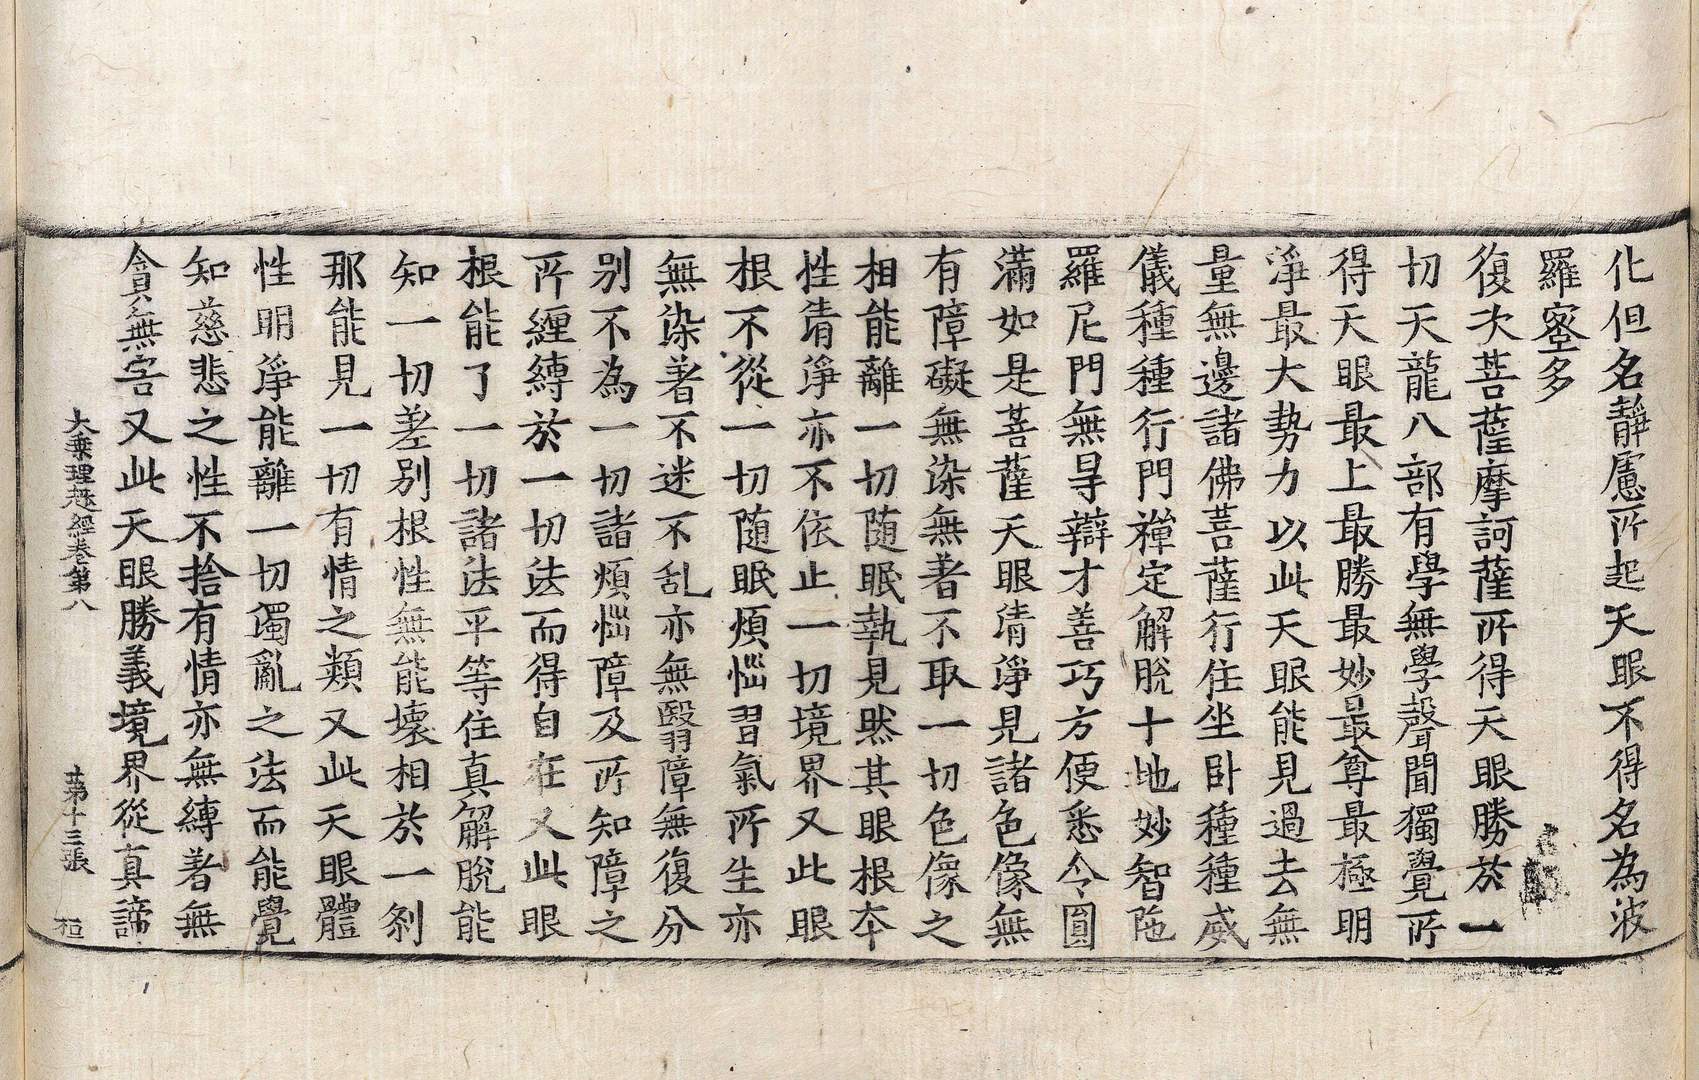 化但名靜慮所起天眼不得名為波
羅蜜多
復次菩薩摩訶薩所得天眼勝於一
切天龍八部有學無學聲聞獨覺所
得天眼最上最勝最妙最尊最極明
淨最大勢力以此天眼能見過去無
量無邊諸佛菩薩行住坐卧種種威
儀種種行門禪定解脫十地妙智陁
羅尼門無㝵辯才善巧方便悉令圓
滿如是菩薩天眼清淨見諸色像無
有障礙無染無著不取一切色像之
相能離一切随眠執見然其眼根本
性清淨亦不依止一切境界又此眼
根不從一切随眠煩惱習氣所生亦
無染著不迷不乱亦無翳障無復分
别不為一切諸煩惱障及所知障之
所纏縛於一切法而得自在又此眼
根能了一切諸法平等住真解脫能
知一切差别根性無能壞相於一刹
那能見一切有情之類又此天眼體
性明淨能離一切濁亂之法而能覺
知慈悲之性不捨有情亦無縛著無
貪無害又此天眼勝義境界從真諦
大乗理趣經卷第八 第十三張 桓